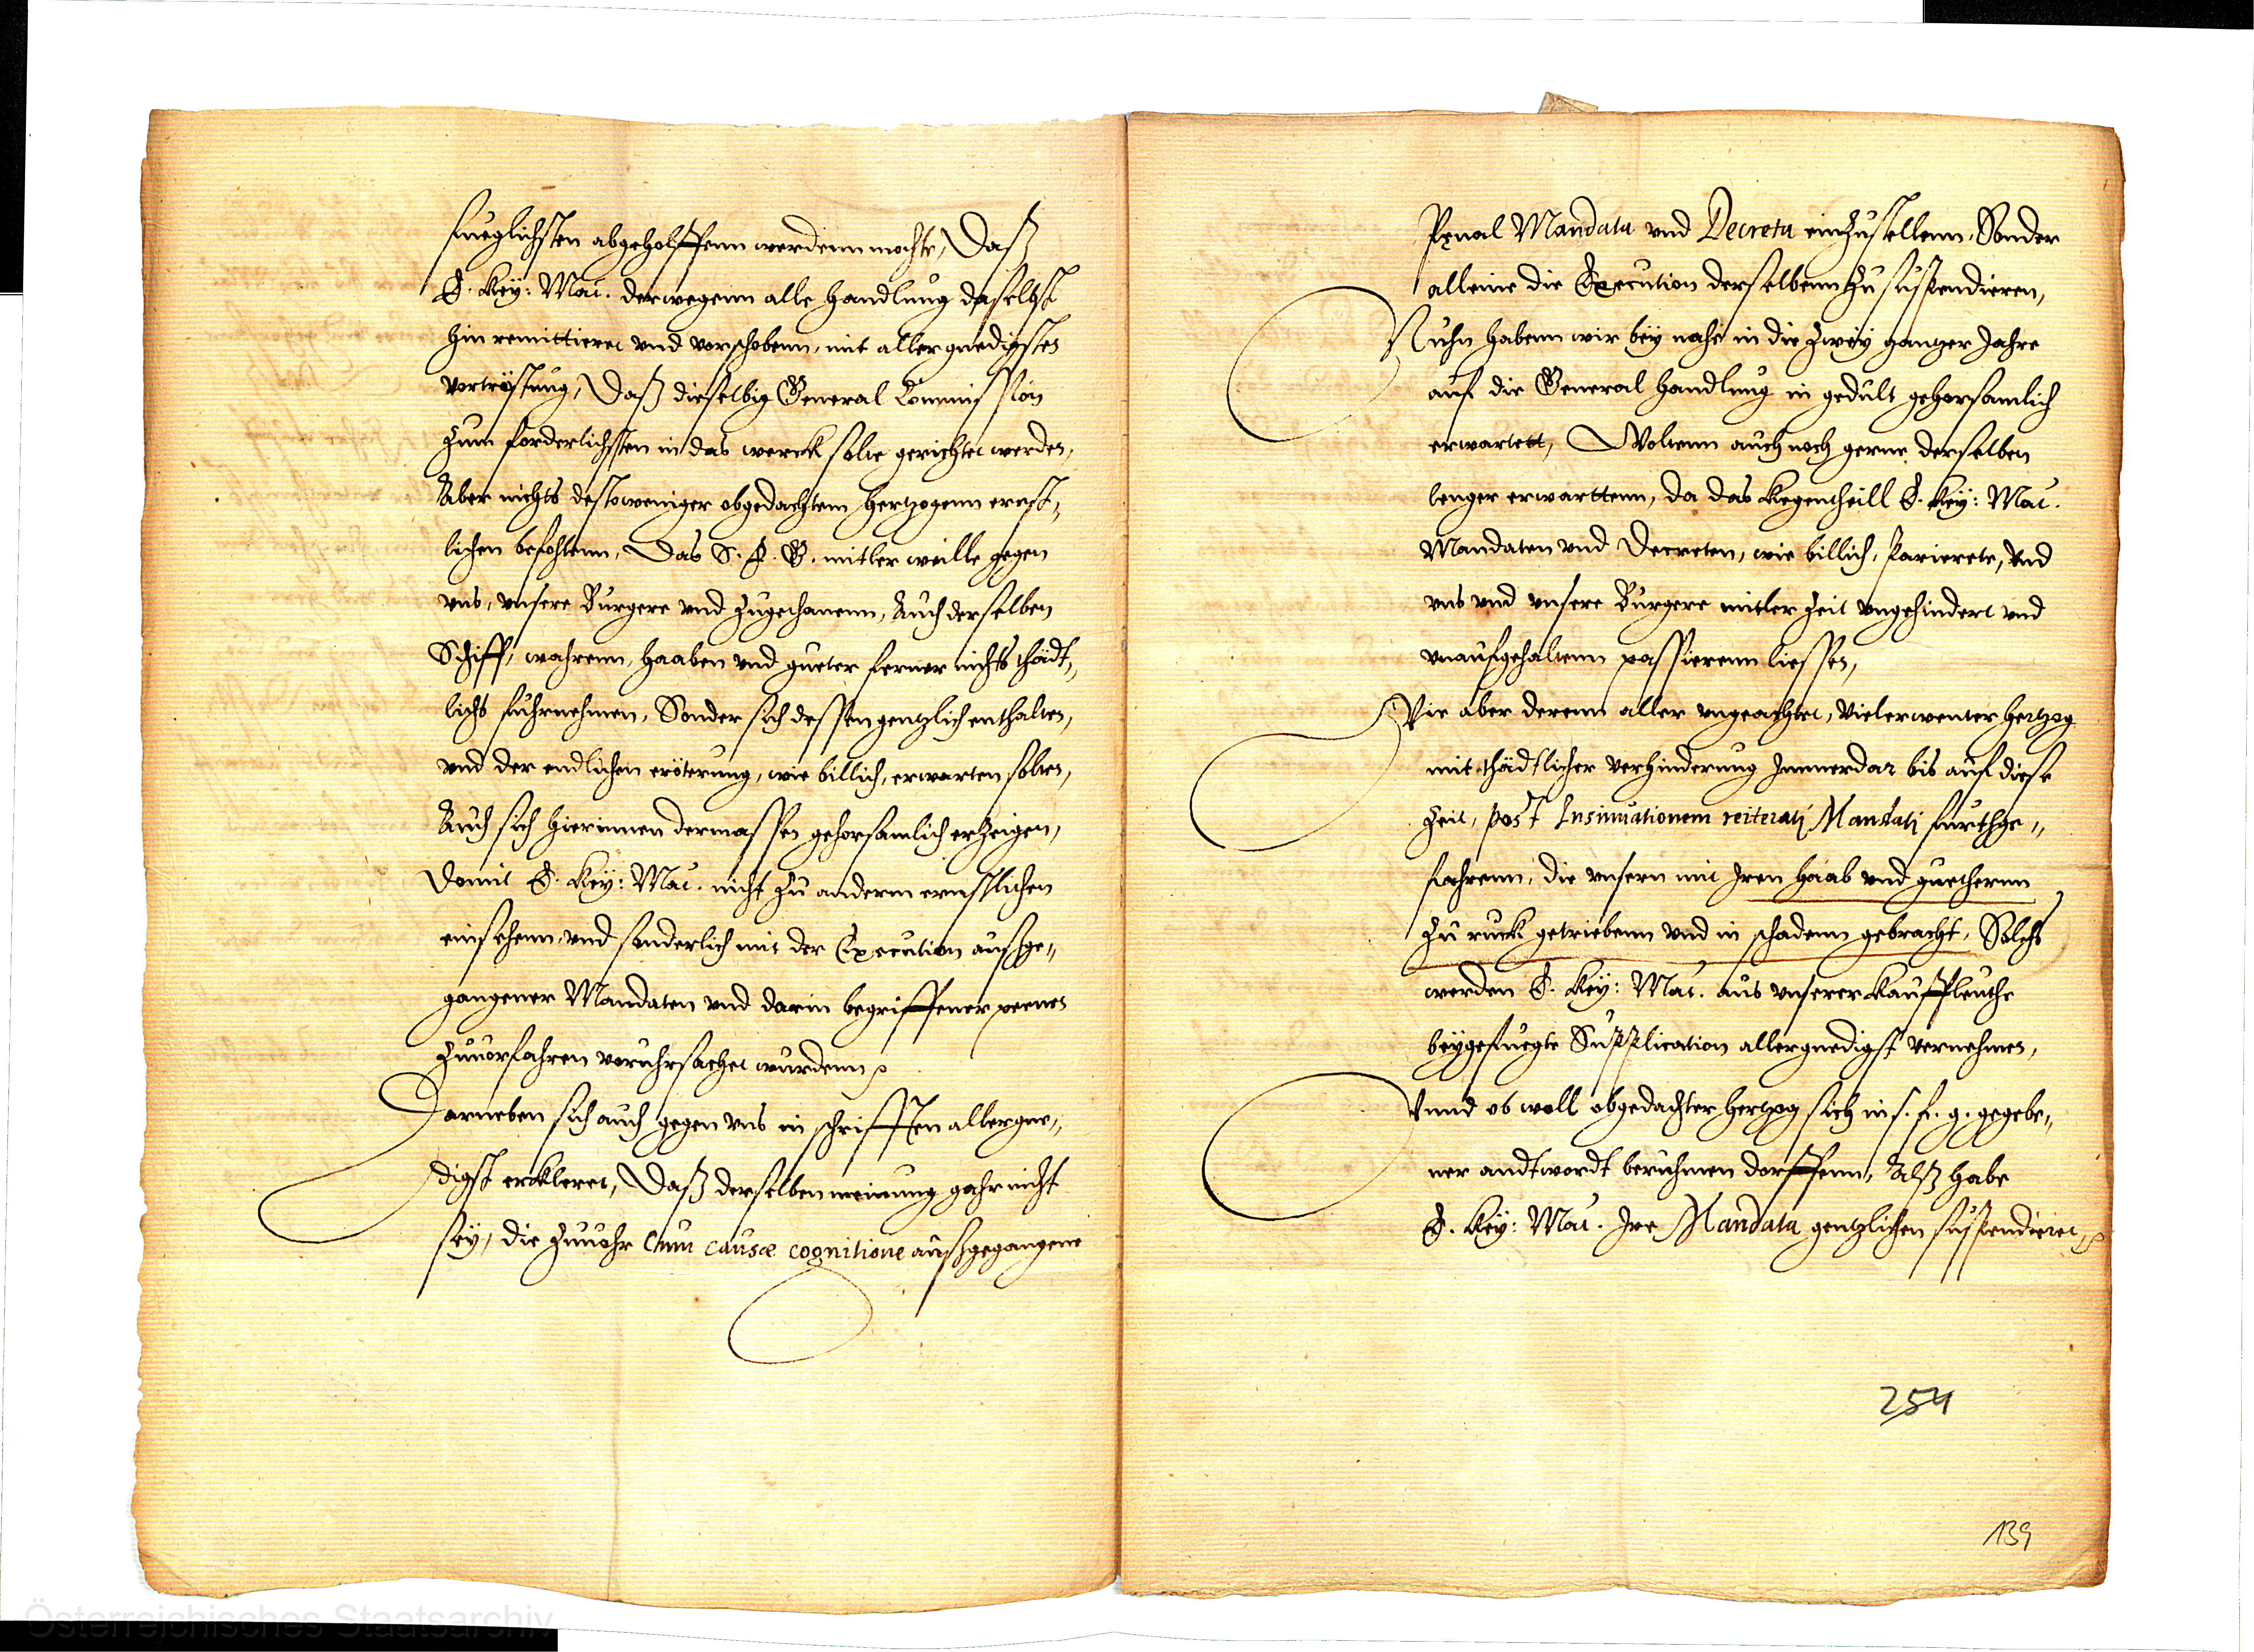 fueglichsten abgeholffenn werdenn mochte, Daß
E. Key: Mat. derwegenn alle handlung daselbst
hin remittieret vnd verschobenn, mit allergnedigster
vertröstung, Daß dieselbig General Commission
zum forderlichsten in das werck solte gerichtet werden,
Aber nichts destoweniger obgedachtem hertzogenn ernst„
lichen befohlenn, Das S. F. G. mitler weille gegen
vns, vnsere Burgere vnd zugethanenn, Auch derselben
Schiff, wahrenn, haaben vnd gueter ferner nichts thädt„
lichs fuhrnehmen, Sonder sich dessen gentzlich enthalten,
vnd der endlichen eröterung, wie billich, erwarten solten,
Auch sich hierinnen dermassen gehorsamlich erzeigen,
Domit E. Key: Mat. nicht zu anderm ernstlichen
einsehenn, vnd sonderlich mit der Execution außge„
gangener Mandaten vnd darin begriffener peenen
zuuorfahren veruhrsachet wurdenn
Darneben sich auch gegen vns in schrifften allergne„
digst erkleret, Daß derselben meinung gahr nicht
sey, die zuuohr Cum causæ cognitione außgegangene
Pęnal Mandata vnd Decreta einzustellenn, Sonder
alleine die Execution derselbenn zu suspendieren,
Nuhn habenn wir bey nahe in die zwey gantzer Jahre
auf die General handlung in gedult gehorsamlich
erwartett, Woltenn auch noch gerne derselben
lenger erwarttenn, da das kegentheill E. Key: Mat.
Mandaten vnd Decreten, wie billich, parierete, vnd
vns vnd vnsere Burgere mitler zeit vngehindert vnd
vnaufgehaltenn passierenn liessen,
Wie aber derenn aller vngeachtet, vielerwenter hertzog
mit thädtlicher verhinderung Immerdar bis auf diese
zeit, post Insinuationem reiteratj Mandatj furthge„
fahrenn, die vnsern mit Iren haab vnd guethernn
zu ruck getriebenn vnd in schadenn gebracht, Solchs
werden E. Key: Mat. aus vnserer Kauffleuthe
beygefuegte Supplication allergnedigst vernehmen,
Vnnd ob woll obgedachter hertzog sich in s. f. g. gegebe„
ner andtwordt beruhmen dorffenn, Alß habe
E. Key: Mat. Ire Mandata gentzlichen suspendieret,
254
139
Österreichisches Staatsarchiv